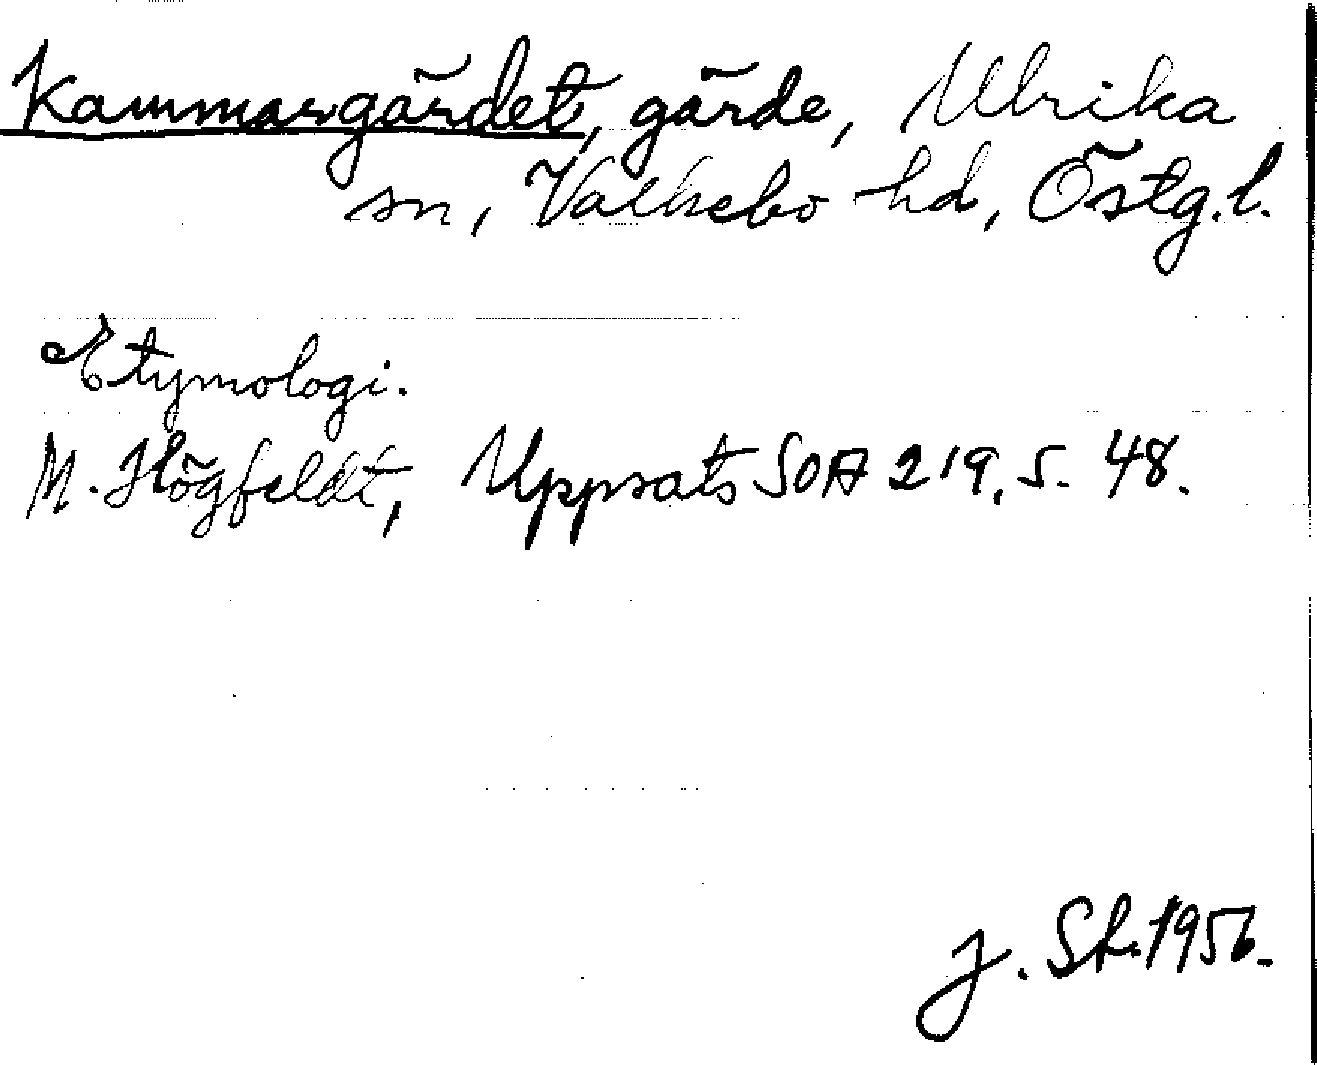 Kammargärdet, gärde, Ulrika
sn, Valkebo hd, Östg.l.
Etymologi.
M. Högfeldt, Uppsats SOA 219, s. 48.
J. Sk. 1956.